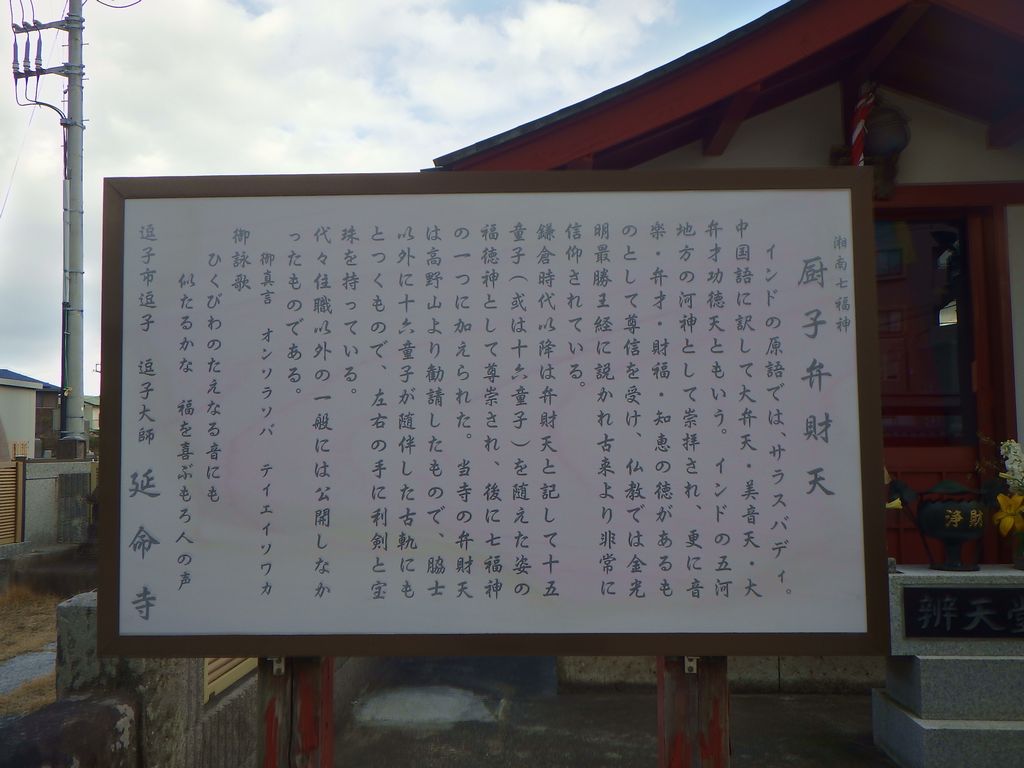 湘南七福神
厨子弁財天
インドの原語では、サラスバディ。
中国語に訳して大弁天・美音天・大
弁才功徳天ともいう。インドの五河
地方の河神として崇拝され、更に音
楽・弁才・財福・知恵の徳があるも
のとして尊信を受け、仏教では金光
明最勝王経に説かれ古来より非常に
信仰されている。
鎌倉時代以降は弁財天と記して十五
童子(或は十六童子)を随えた姿の
福徳神として尊崇され、後に七福神
の一つに加えられた。当寺の弁財天
は高野山より勧請したもので、脇士
以外に十六童子が随伴した古軌にも
とつくもので、左右の手に利剣と宝
珠を持っている。
代々住職以外の一般には公開しなか
ったものである。
御真言 オンソラソバ テイエイソワカ
御詠歌
ひくびわのたえなる音にも
似たるかな 福を喜ぶもろ人の声
逗子市逗子 逗子大師 延命寺
浄財
辨天堂